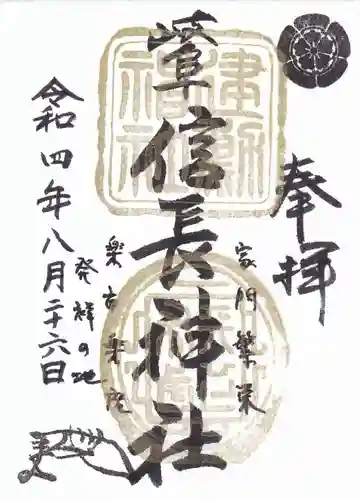 奉拝
家門繁栄
信長神社
楽市楽座
発祥の地
令和四年八月二十六日
建勲神社